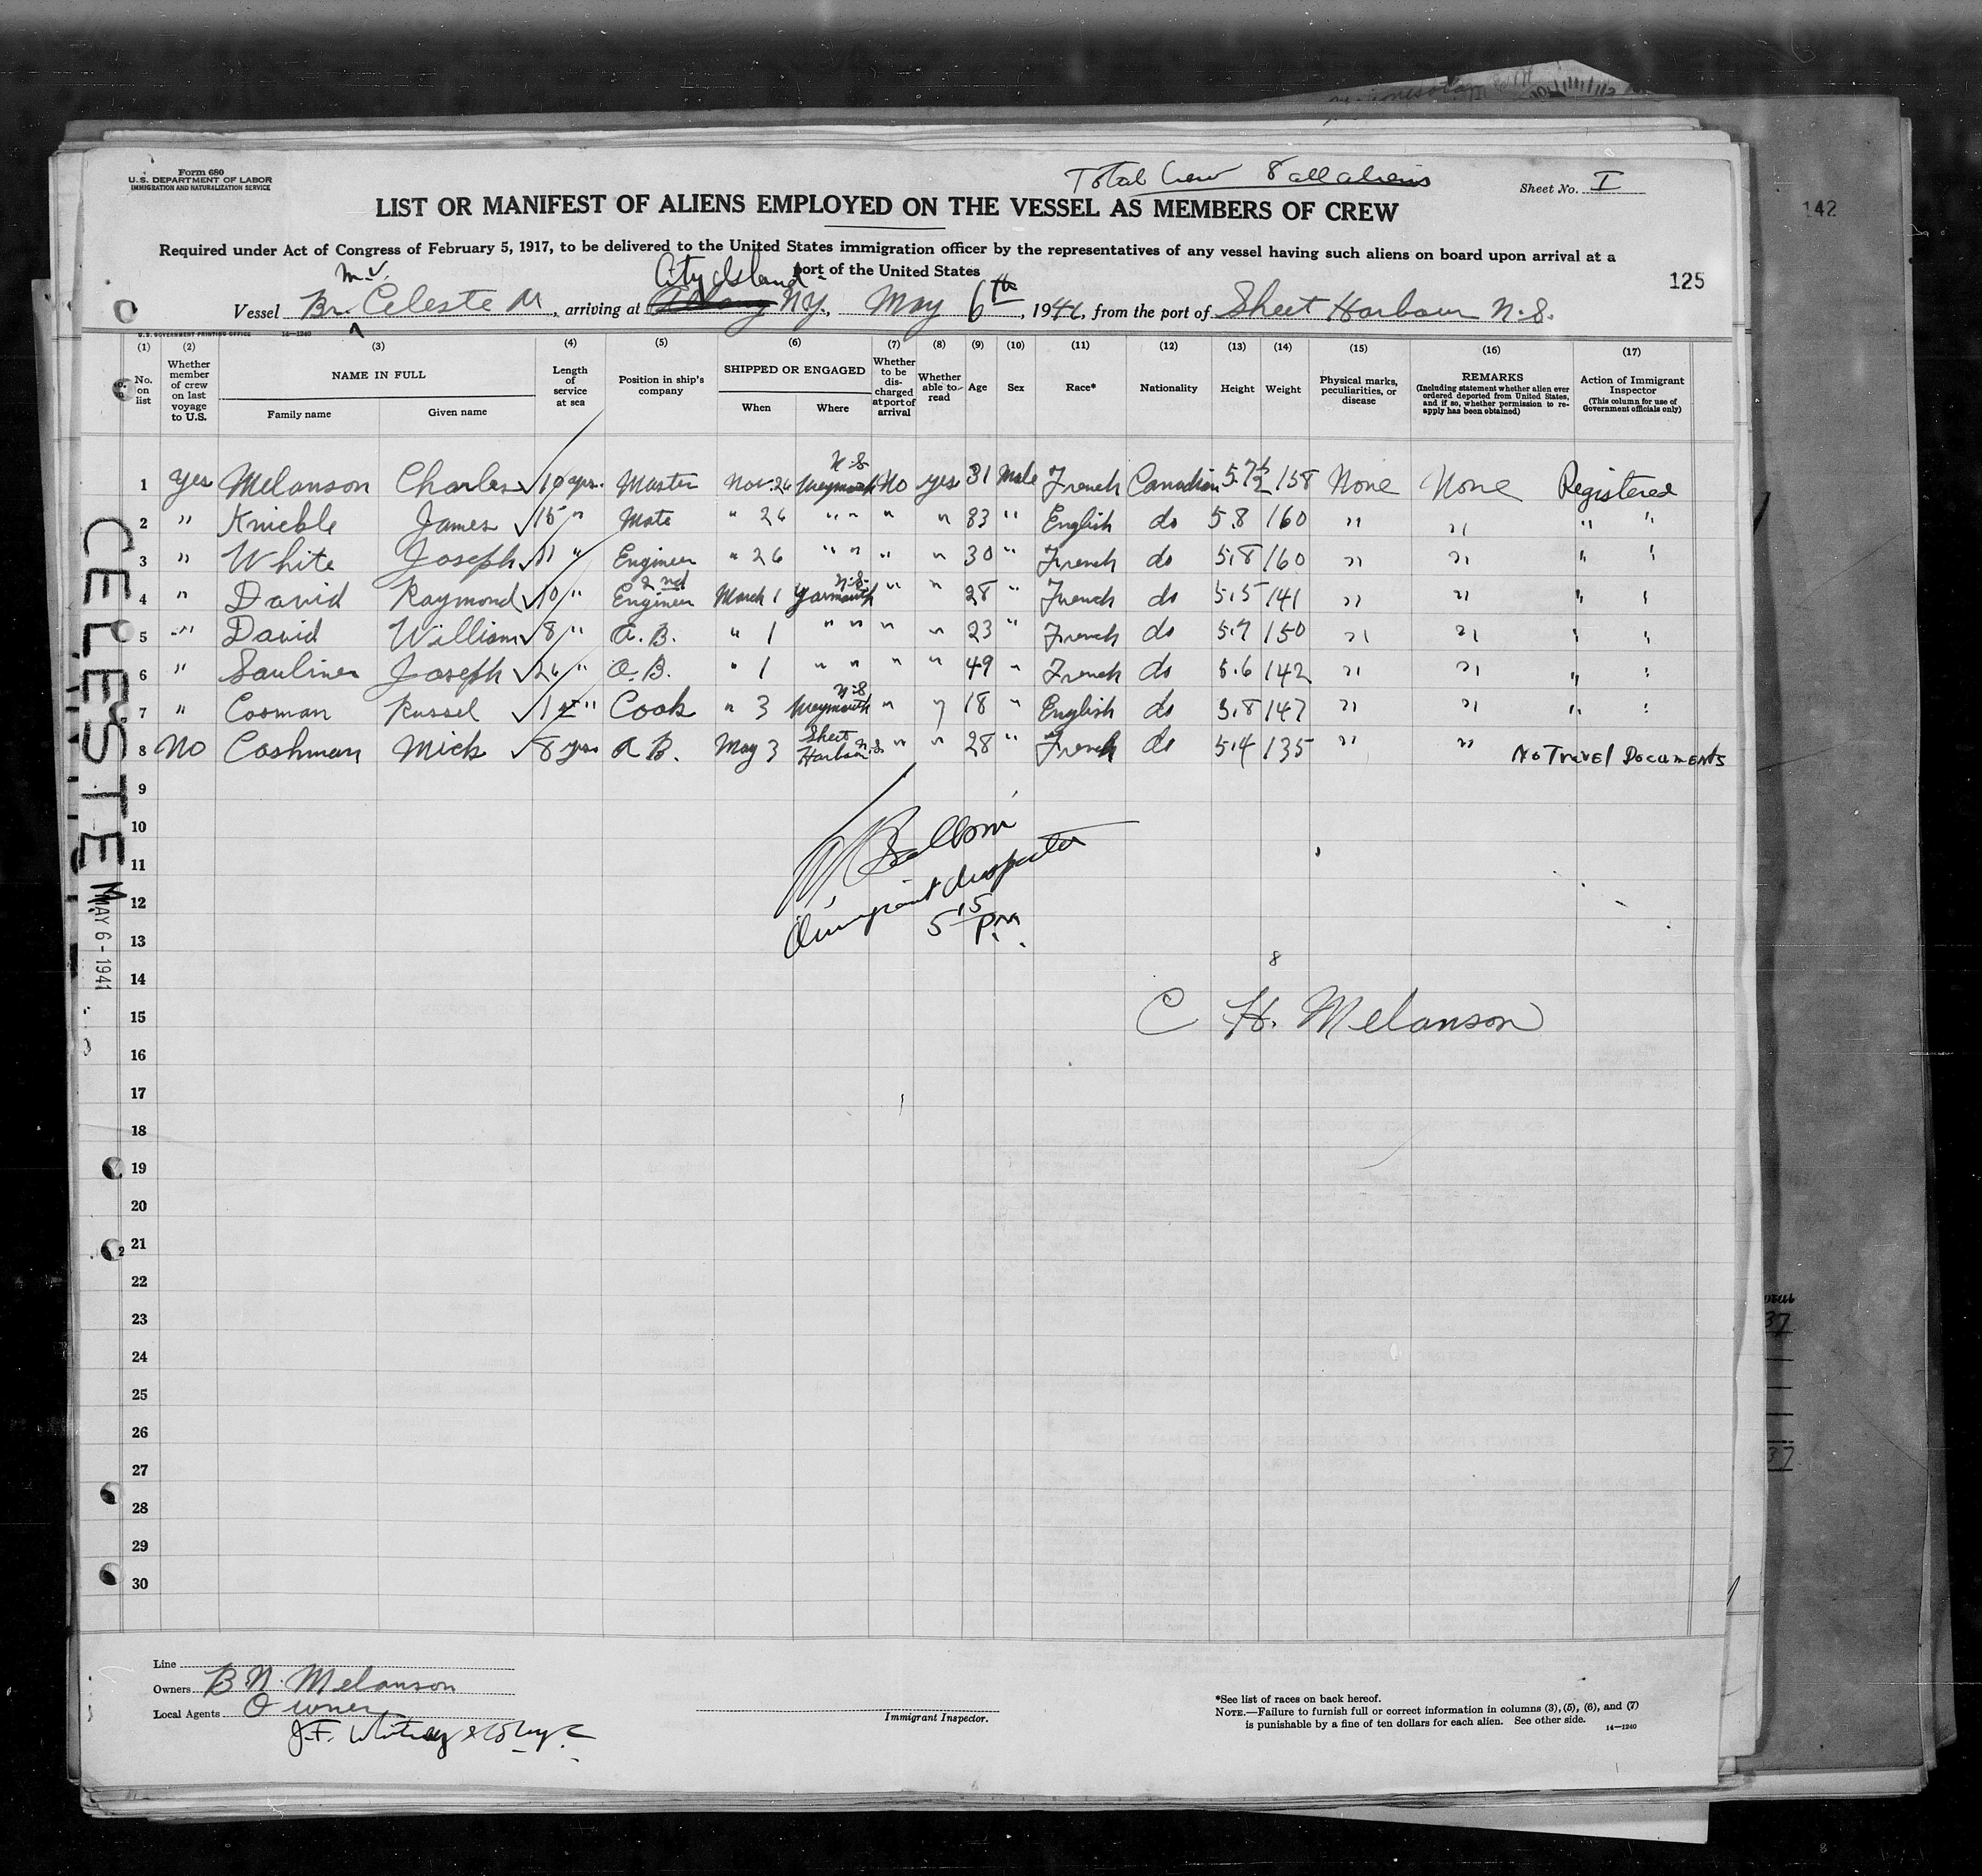 Form 680
U.S. DEPARTMENT OF LABOR
IMMIGRATION AND NATURALIZATION SERVICE
Total Crew 8 all aliens
Sheet No. I
142
LIST OR MANIFEST OF ALIENS EMPLOYED ON THE VESSEL AS MEMBERS OF CREW
Required under Act of Congress of February 5, 1917, to be delivered to the United States immigration officer by the representatives of any vessel having such aliens on board upon arrival at a
port of the United States
125
m.v. City Island
Vessel Br. Celeste M, arriving at N.Y., May 6th, 1941, from the port of Sheet Harbour N.S.
U.S. GOVERNMENT PRINTING OFFICE 14—1240
(1) (2) (3) (4) (5) (6) (7) (8) (9) (10) (11) (12) (13) (14) (15) (16) (17)
No. on list
Whether member of crew on last voyage to U.S.
NAME IN FULL
Family name Given name
Length of service at sea
Position in ship's company
SHIPPED OR ENGAGED
When Where
Whether to be discharged at port of arrival
Whether able to read
Age
Sex
Race*
Nationality
Height
Weight
Physical marks, peculiarities, or disease
REMARKS
(Including statement whether alien ever ordered deported from United States, and if so, whether permission to reapply has been obtained)
Action of Immigrant Inspector
(This column for use of Government officials only)
1 yes Melanson Charles 10 yrs. Master Nov. 26 Weymouth N.S. No yes 31 Male French Canadian 5.7½ 158 None None Registered
2 " Knickle James 15 " Mate " 26 " " " " 33 " English do 5.8 160 " " " "
3 " White Joseph 11 " Engineer " 26 " " " " 30 " French do 5.8 160 " " " "
4 " David Raymond 10 " 2nd Engineer March 1 Yarmouth N.S. " " 28 " French do 5.5 141 " " " "
5 " David William 8 " A.B. " 1 " " " " 23 " French do 5.7 150 " " " "
6 " Sauliner Joseph 26 " A.B. " 1 " " " " 49 " French do 5.6 142 " " " "
7 " Cosman Russel 1 " Cook " 3 Weymouth N.S. " " 18 " English do 5.8 147 " " " "
8 No Cashman Mick 8 yrs A.B. May 3 Sheet Harbour N.S. " " 28 " French do 5.4 135 " " No Travel Documents
9
10
11
12
13
14
15
16
17
18
19
20
21
22
23
24
25
26
27
28
29
30
Immigrant Inspector
5 15 pm
8
C H. Melanson
CELESTE M.
MAY 6 - 1941
Line
Owners B. N. Melanson
Local Agents Owner
J.F. Whitney & Co
Immigrant Inspector.
*See list of races on back hereof.
NOTE.—Failure to furnish full or correct information in columns (3), (5), (6), and (7)
is punishable by a fine of ten dollars for each alien. See other side. 14—1240
37
37